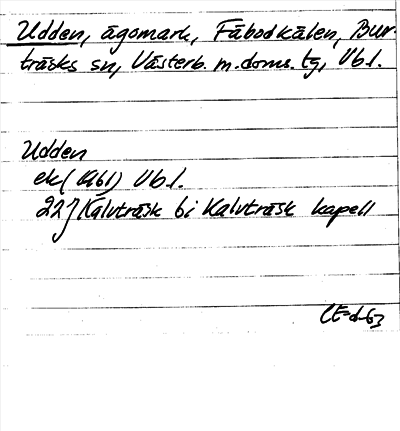 Udden, ägomark, Fäbodkälen, Bur-
träsks sn, Västerb. m. doms. tg, Vbl.
Udden
ek (1961) Vbl.
22J Kalvträsk 6i Kalvträsk kapell